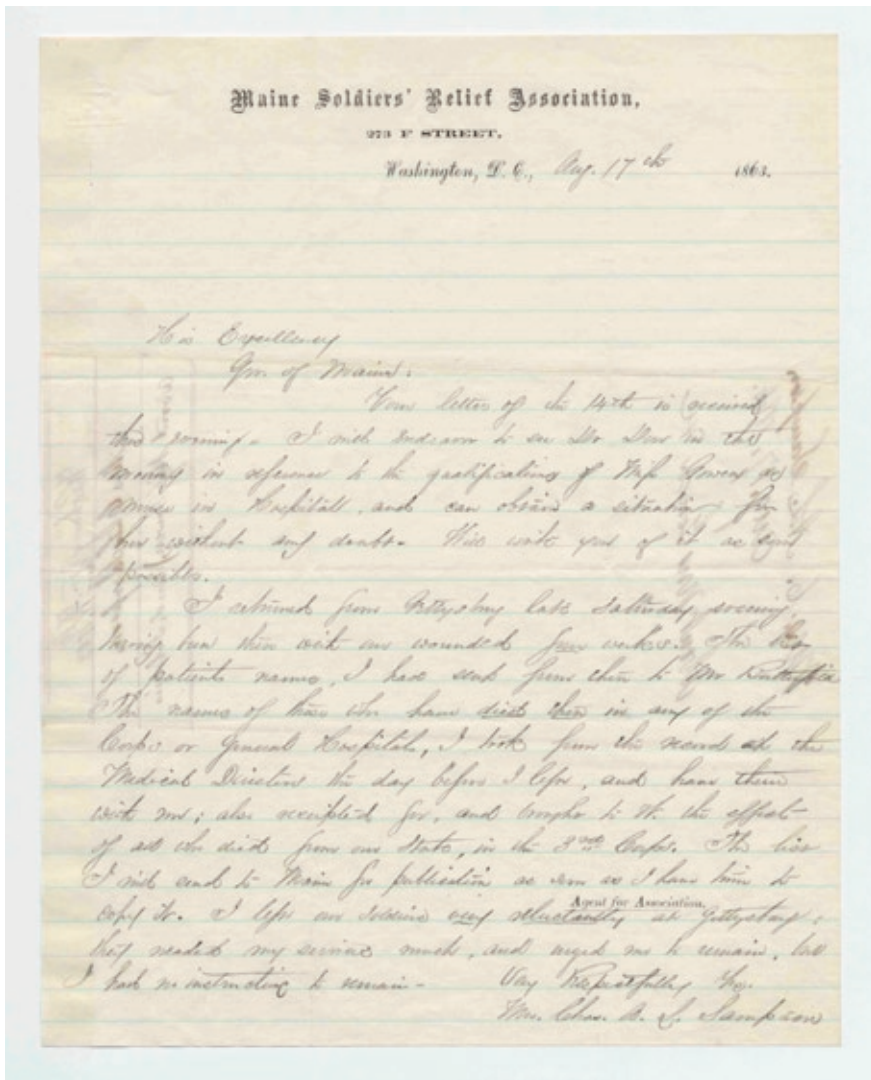 Maine Soldiers' Relief Association,
273 F STREET,
Washington, D. C., Aug. 17th 1863.
His Excellency
Gov. of Maine:
Your letter of the 14th is received
this evening. I will endeavor to see Dr Dow in the
morning in reference to the qualifications of Miss Bowen as
nurse in Hospitall, and can obtain a situation for
her without any doubt. Will write you of it as soon
as possible.
I returned from Gettysburg late Saturday evening,
having been there with our wounded four weeks. The
of patients names, I have sent from there to Mr
The names of those who have died there in any of the
Corps or General Hospital, I took from the record at the
Medical Directors the day before I left, and have them
with me; also receipted for, and brought to W. the effects
of all who died from our State, in the 3rd Corps. The list
I will send to Maine for publication as soon as I have time to
copy it. I left our soldiers very reluctantly at Gettysburg;
Agent for Association.
they needed my services much, and urged me to remain, but
I had no instructions to remain-
Very Respectfully &c.
Mrs. Chas. A. L. Sampson